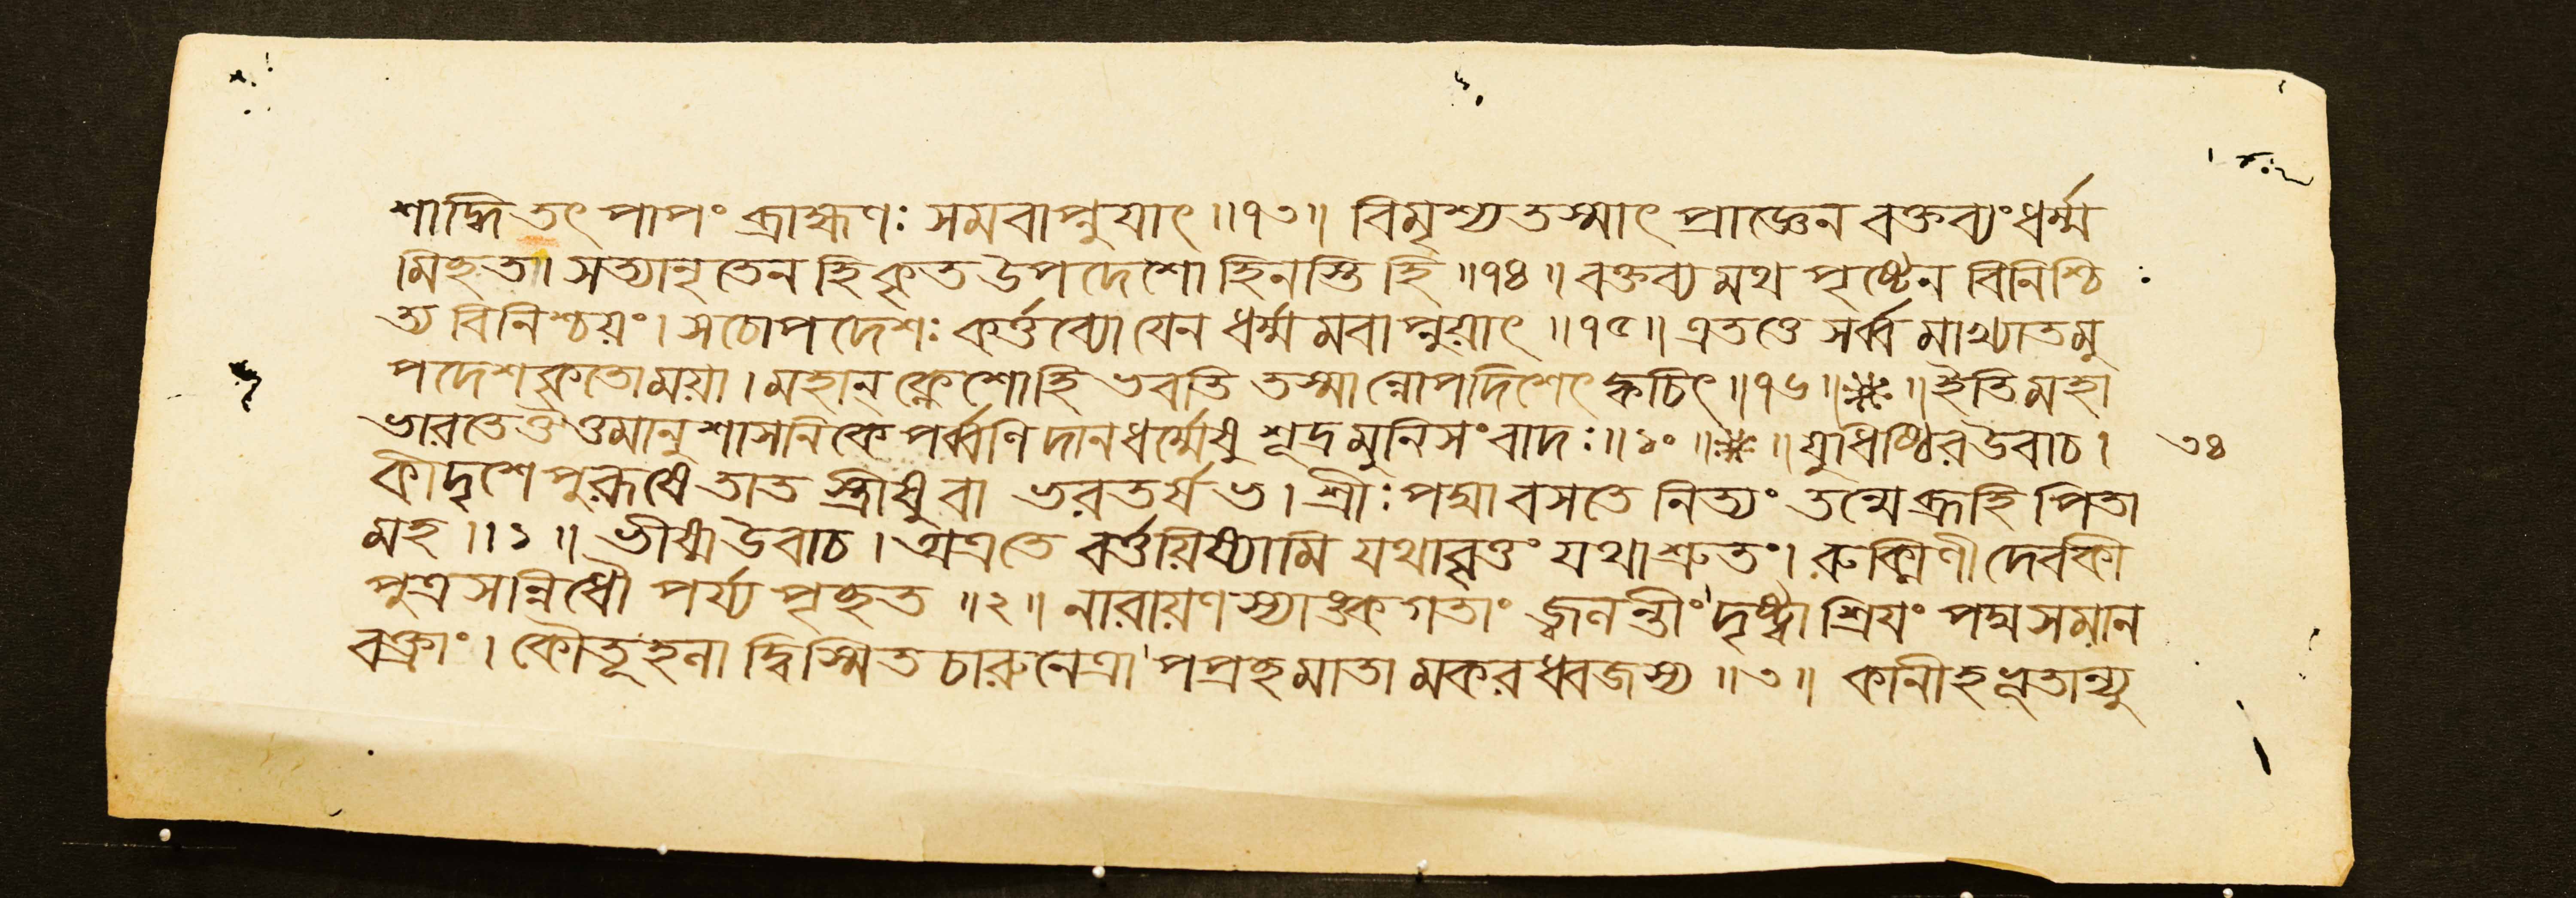 শাদ্ধি তৎ পাপং ব্রাহ্মণঃ সমবাপ্নুয়াৎ ॥৭৩॥ বিমৃশ্য তস্মাৎ প্রাজ্ঞেন বক্তব্যং ধর্ম্ম
মিচ্ছতা। সত্যানৃতেন হি কৃত উপদেশো হিনস্তি হি ॥৭৪॥ বক্তব্যমথ পৃষ্টেন বিনিশ্চি
ত্য বিনিশ্চয়ং। সচোপদেশঃ কর্ত্তব্যো যেন ধর্ম্মমবাপ্নুয়াৎ ॥৭৫॥ এতত্তে সর্ব্বমাখ্যাতমু
পদেশকৃতো ময়া। মহান্ ক্লেশো হি ভবতি তস্মান্নোপদিশেৎ ক্বচিৎ ॥৭৬॥ ॥ ইতি মহা
ভারতে ঔত্তমানুশাসনিকে পর্ব্বণি দানধর্ম্মেষু শূদ্রমুনিসংবাদঃ ॥১০॥ ॥ যুধিষ্ঠির উবাচ। ৩৪
কীদৃশে পুরুষে তাত স্ত্রীষু বা ভরতর্ষভ। শ্রীঃ পদ্মা বসতে নিত্যং তন্মে ব্রূহি পিতা
মহ ॥১॥ ভীষ্ম উবাচ। অত্র তে বর্ত্তয়িষ্যামি যথাবৃত্তং যথাশ্রুতং। রুক্মিণী দেবকী
পুত্র সান্নিধৌ পর্য্যপৃচ্ছত ॥২॥ নারায়ণস্যাঙ্কগতাং জ্বলন্তীং দৃষ্ট্বা শ্রিয়ং পদ্মসমান
বক্ত্রাং। কৌতূহলাদ্বিস্মিতচারুনেত্রা পপ্রচ্ছ মাতা মকরধ্বজস্য ॥৩॥ কানীহ ভূতান্যু